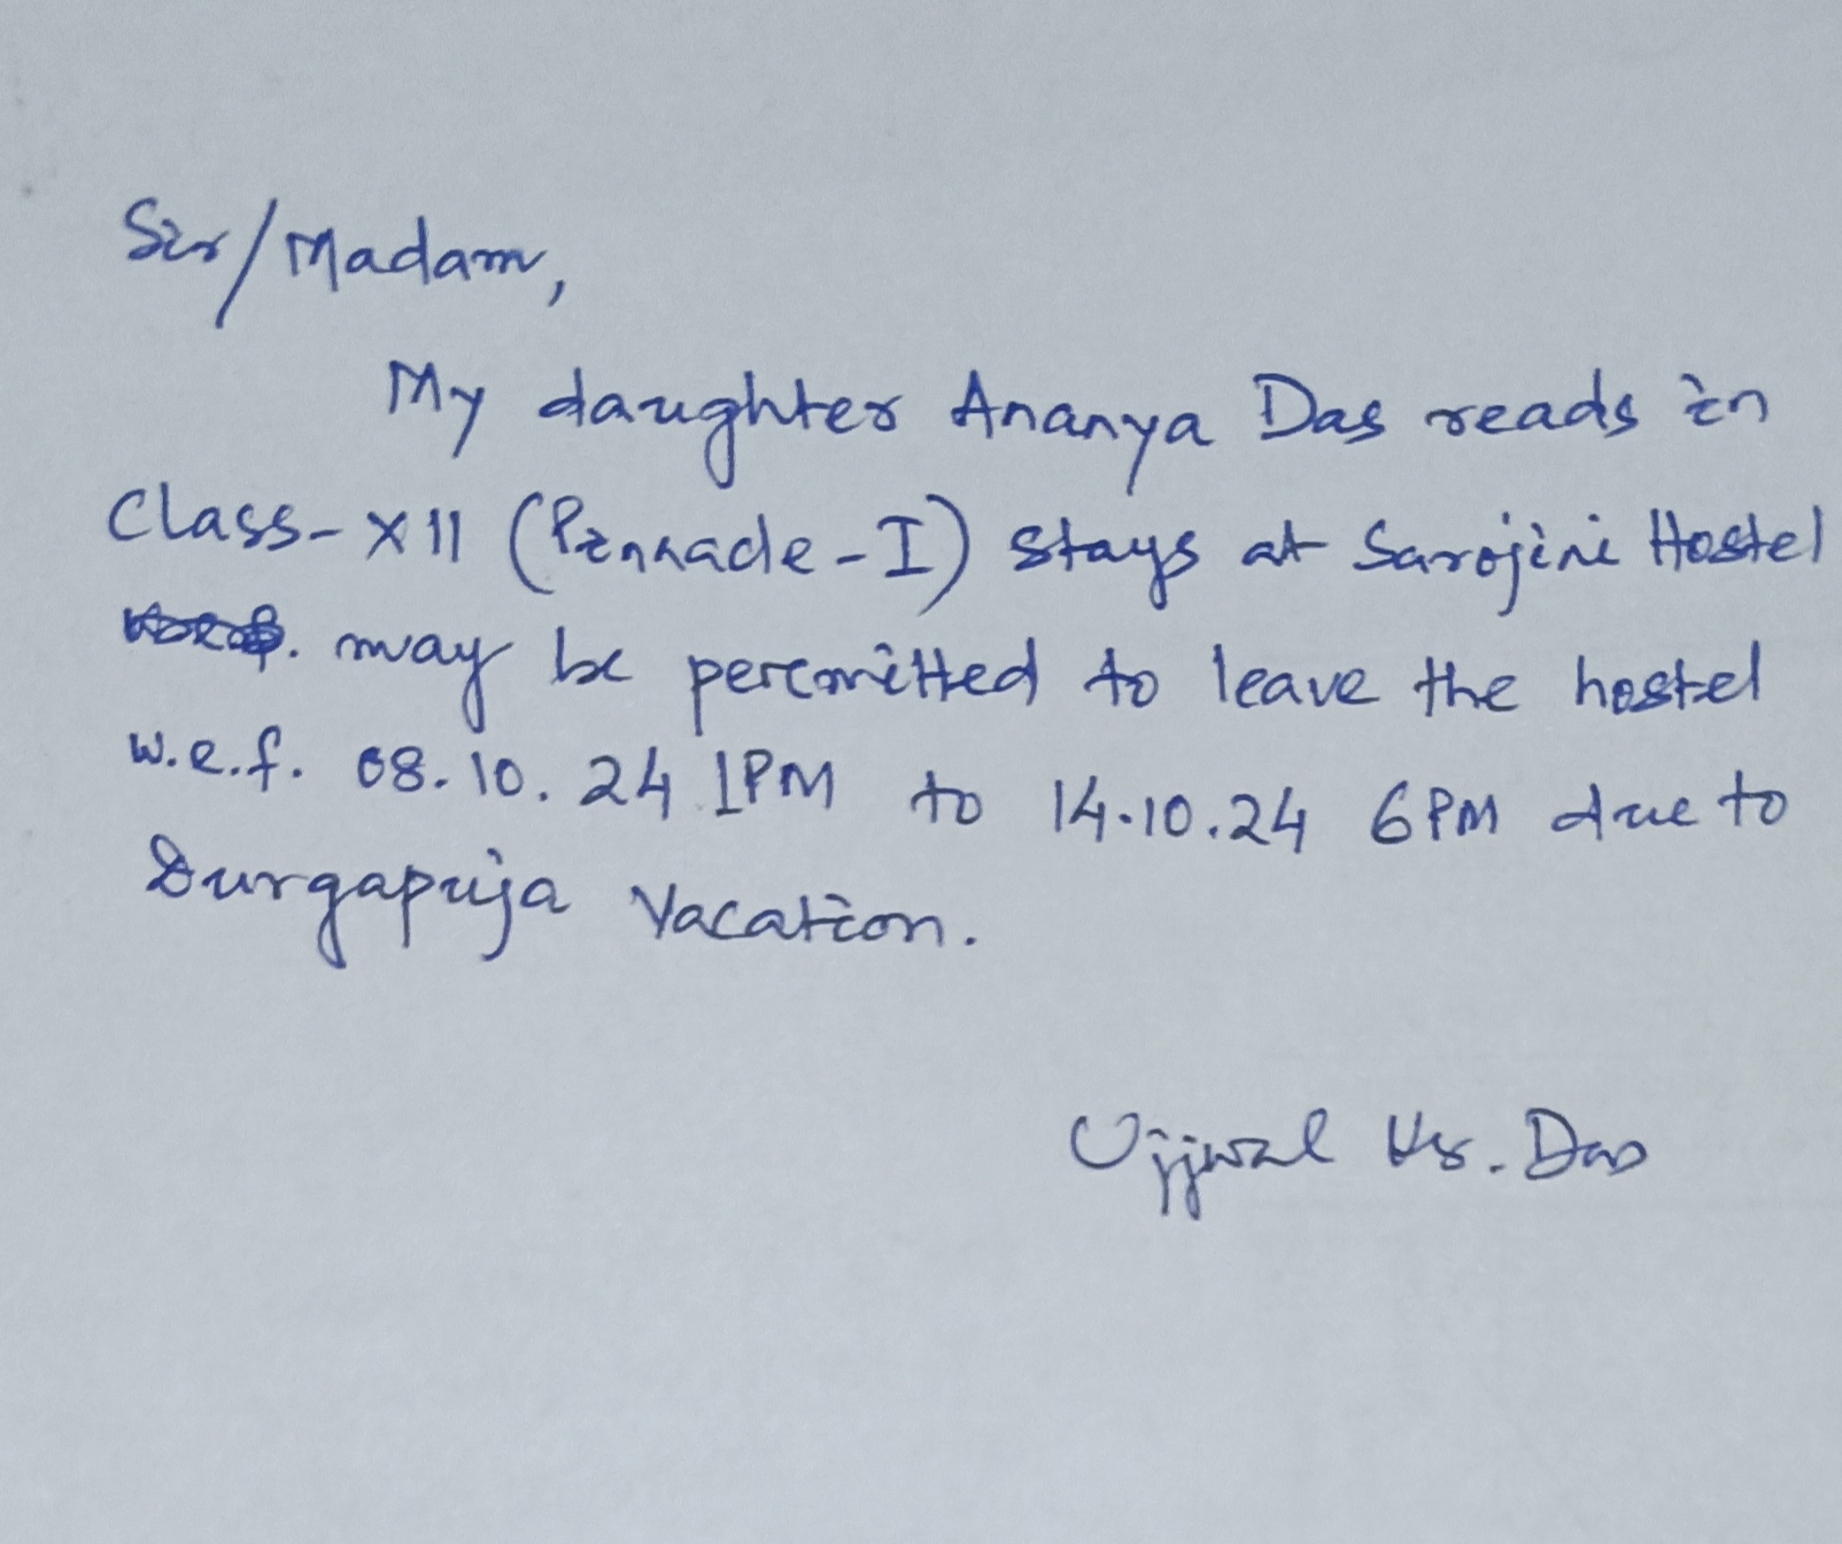 Sir/Madam,
My daughter Ananya Das reads in
Class-XII (Pinnacle-I) stays at Sarojini Hostel
may be permitted to leave the hostel
w.e.f. 08.10.24 1PM to 14.10.24 6PM due to
Durgapuja Vacation.
Ujjwal Kr. Das